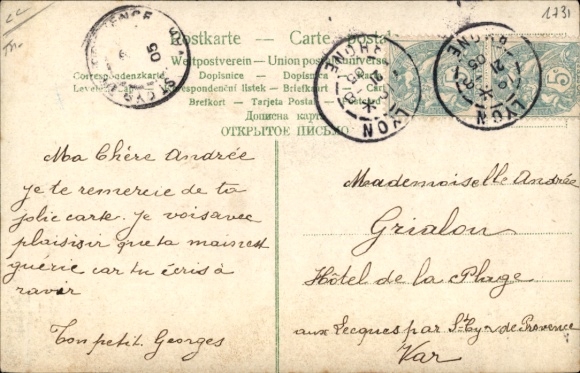 1731
Postkarte — Carte postale
Weltpostverein — Union postale universelle
Correspondenzkarte Dopisnice Dopisnica
Correspondenční listek Brefkort
Brefkort — Tarjeta Postal
Дописна карта
ОТКРЫТОЕ ПИСЬМО
LYON RHONE
LYON RHONE
5 5
Ma Chère Andrée
je te remercie de ta
jolie carte. Je vois avec
plaisisir que ta main est
guérie car tu écris à
ravir
Ton petit Georges
Mademoiselle Andrée
Grialou
Hôtel de la Plage
aux Lecques par St Cyr de Provence
Var